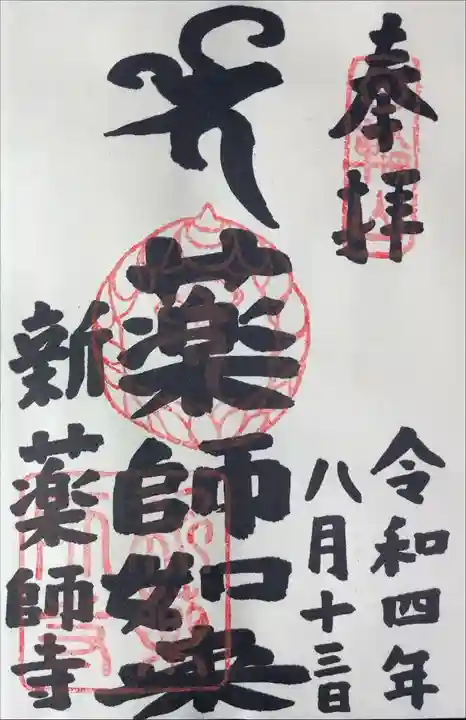 奉拝
令和四年
八月十三日
薬師如来
新薬師寺